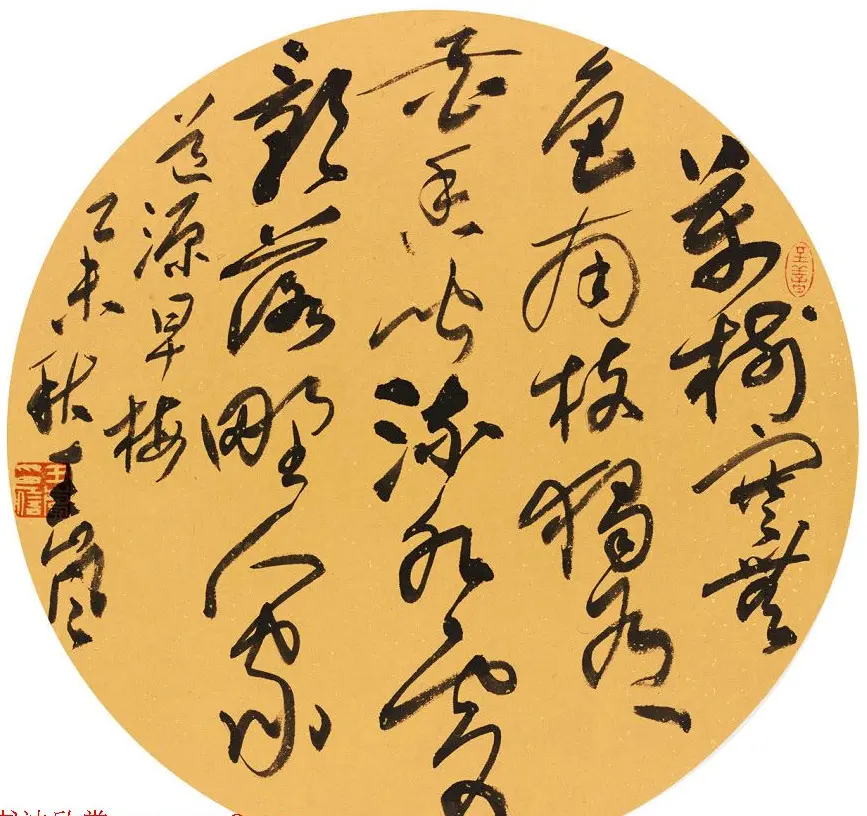 萬樹寒無
色南枝獨有
花香聞流水處
影落野人家
道源早梅
乙未秋王嵐